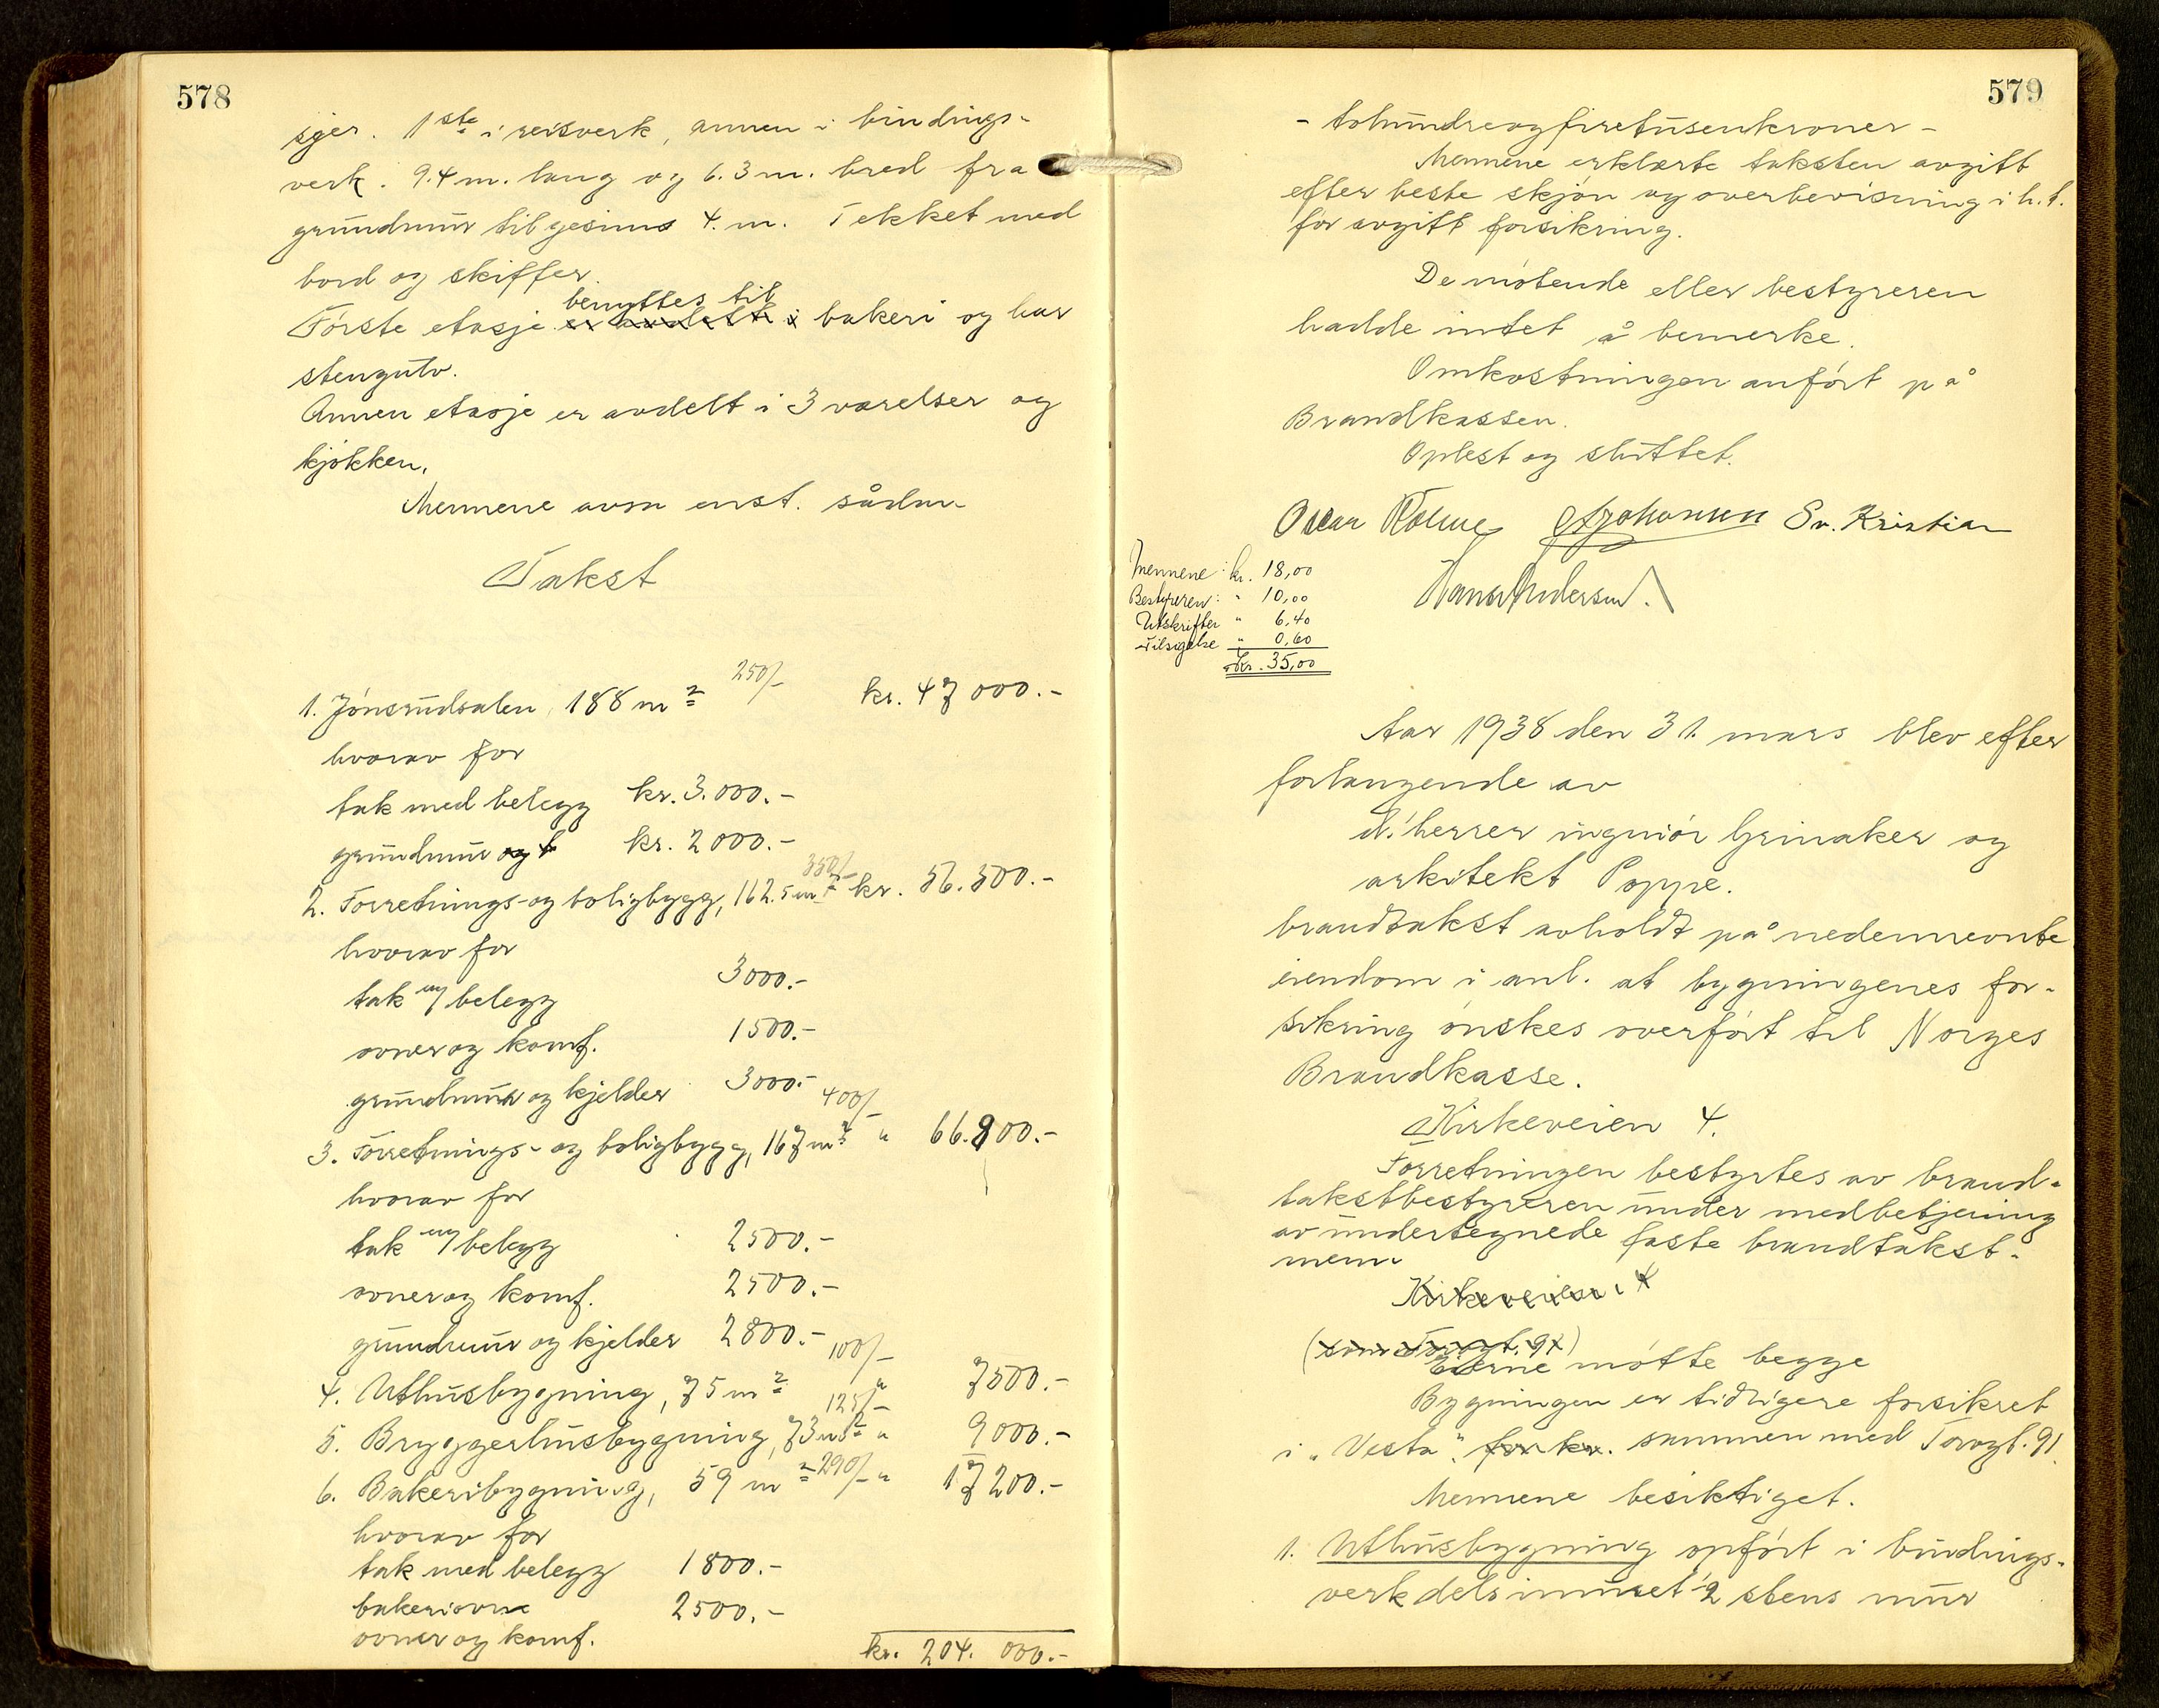 578
sjer. 1ste i reisverk, annen i bindings-
verk. 9.4 m. lang og 6.3 m. bred fra
grundmur til gesims 4. m. Tekket med
bord og skiffer.
benyttes til
Første etasje er avdelt i bakeri og har
stengulv.
Annen etasje er avdelt i 3 værelser og
kjøkken.
Mennene avga enst. sådan
Takst
1. Jønsrudsalen, 188 m² 250/- kr. 47000.-
hvorav for
tak med belegg kr. 3.000.-
grundmur og kr. 2000.-
2. Forretnings- og boligbygg, 162.5 m² 350/- kr. 56.500.-
hvorav for
tak m/ belegg 3000.-
ovner og komf. 1500.-
grundmur og kjelder 3000.-
3. Forretnings- og boligbygg, 167 m² 400/- " 66.800.-
hvorav for
tak m/ belegg 2500.-
ovner og komf. 2500.-
grundmur og kjelder 2800.-
4. Uthusbygning, 75 m² 100/- " 7500.-
5. Bryggerhusbygning, 73 m² 125/- " 9000.-
6. Bakeribygning, 59 m² 290/- " 17200.-
hvorav for
tak med belegg 1800.-
bakeriovne 2500.-
ovner og komf.
kr. 204.000.-
579
- tohundreogfiretusenkroner -
Mennene erklærte taksten avgitt
efter beste skjøn og overbevisning i h. t.
før avgitt forsikring.
De møtende eller bestyreren
hadde intet å bemerke.
Omkostningen anført på
Brandkassen.
Oplest og sluttet.
Oscar Holme Johansen Sv. Kristian
Hans Andersen.
Mennene: kr. 18,00
Bestyreren: " 10,00
Utskrifter " 6,40
Tilsigelse " 0,60
Kr. 35,00
Aar 1938 den 31. mars blev efter
forlangende av
d'herrer ingeniør Grinaker og
arkitekt Poppe.
brandtakst avholdt på nedennevnte
eiendom i anl. at bygningenes for-
sikring ønskes overført til Norges
Brandkasse.
Kirkeveien 4.
Forretningen bestyrtes av brand-
takstbestyreren under medbetjening
av undertegnede faste brandtakst-
menn
Kirkeveien 4
(som Torvgt. 91)
Eierne møtte begge
Bygningen er tidligere forsikret
i "Vesta" for kr. sammen med Torvgt. 91.
Mennene besiktiget.
1. Uthusbygning opført i bindings-
verk dels inmuret 1/2 stens mur